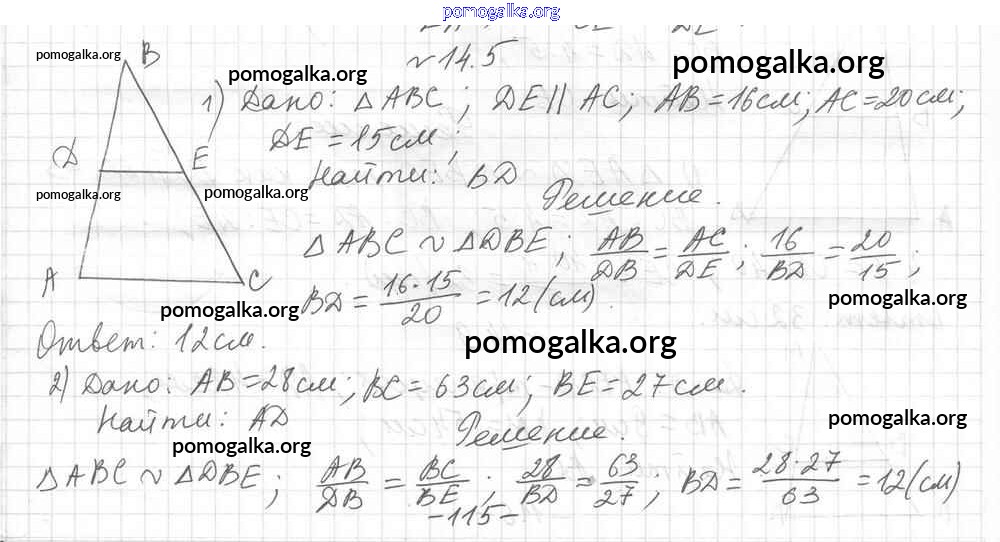 pomogalka.org
№14.5
pomogalka.org
B
pomogalka.org
pomogalka.org
1) Дано: △ABC; DE || AC; AB=16см; AC=20см;
DE=15см;
D
E
Найти: BD
pomogalka.org
pomogalka.org
Решение.
△ABC ~ △DBE; AB/DB = AC/DE; 16/BD = 20/15;
A
C
BD = 16·15/20 = 12(см).
pomogalka.org
pomogalka.org
Ответ: 12см.
pomogalka.org
2) Дано: AB=28см; BC=63см; BE=27см.
Найти: AD
Решение.
pomogalka.org
pomogalka.org
△ABC ~ △DBE; AB/DB = BC/BE; 28/BD = 63/27; BD = 28·27/63 = 12(см)
-115-